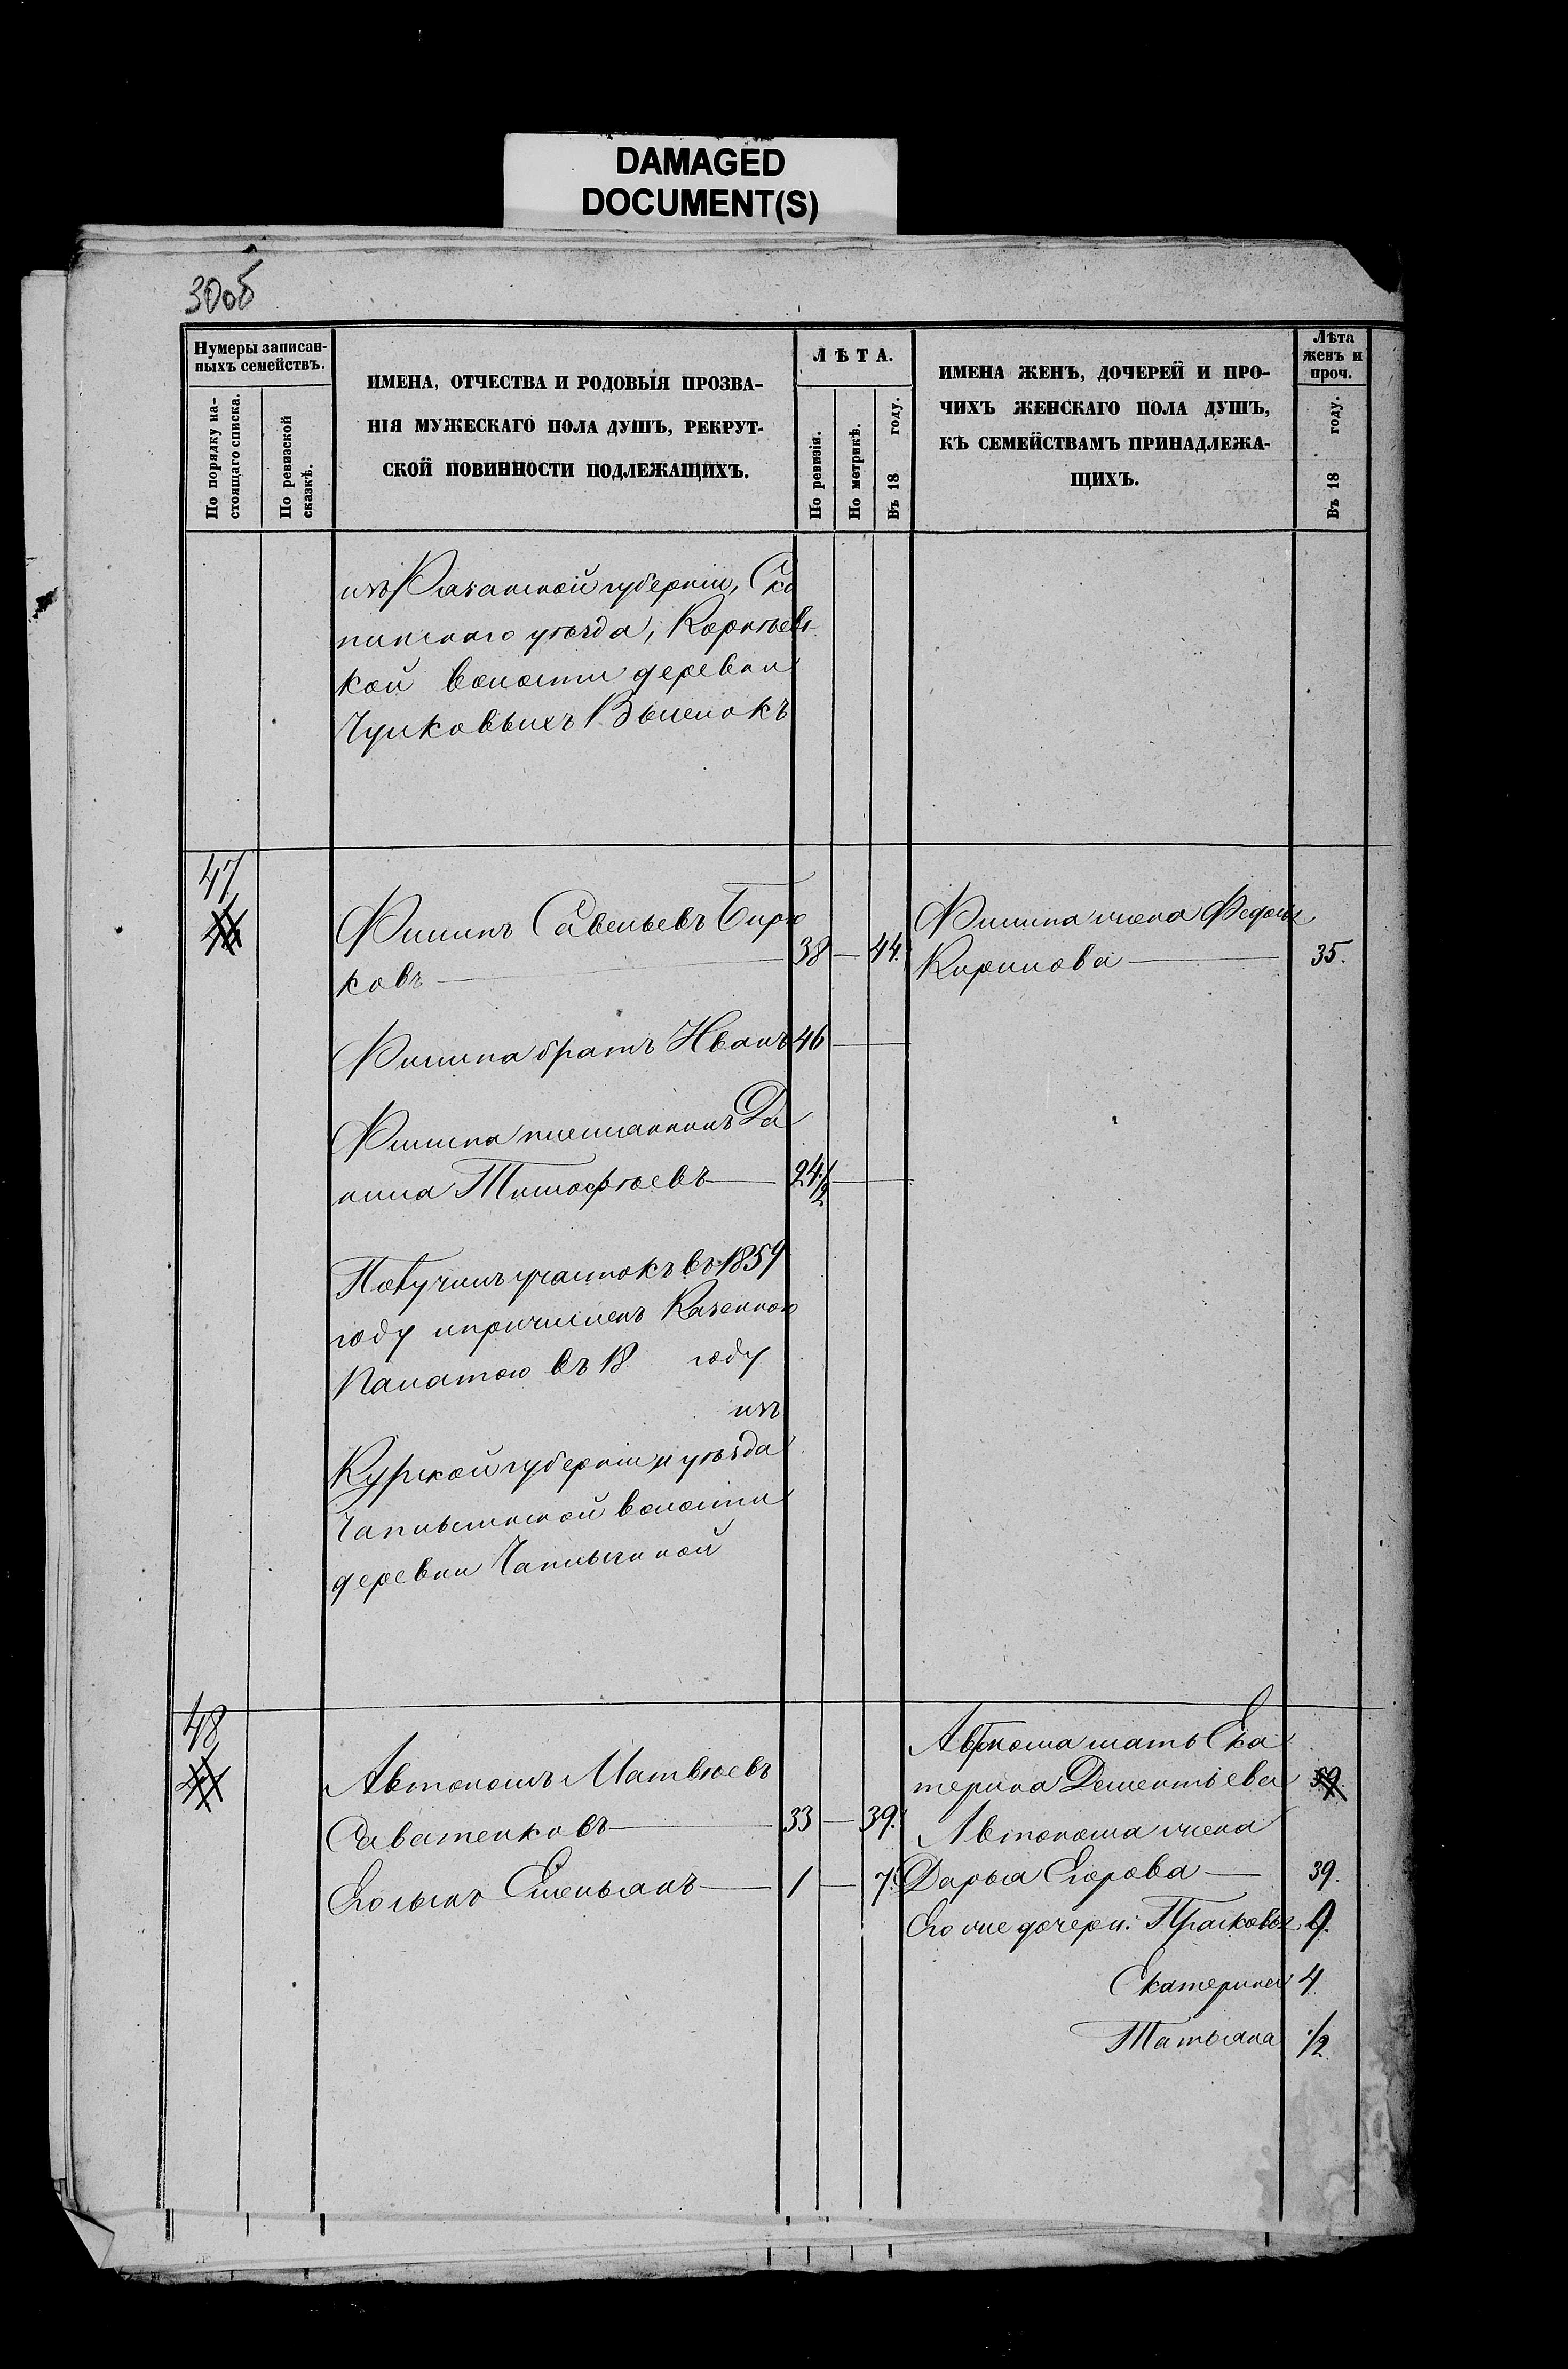 DAMAGED
DOCUMENT(S)
30об
Нумеры записан-
ныхъ семействъ.
По порядку на-
стоящаго списка.
По ревизской
сказкѣ.
ИМЕНА, ОТЧЕСТВА И РОДОВЫЯ ПРОЗВА-
НІЯ МУЖЕСКАГО ПОЛА ДУШЪ, РЕКРУТ-
СКОЙ ПОВИННОСТИ ПОДЛЕЖАЩИХЪ.
ЛѢТА.
По ревизіи.
По метрикѣ.
Въ 18 году.
ИМЕНА ЖЕНЪ, ДОЧЕРЕЙ И ПРО-
ЧИХЪ ЖЕНСКАГО ПОЛА ДУШЪ,
КЪ СЕМЕЙСТВАМЪ ПРИНАДЛЕЖА-
ЩИХЪ.
Лѣта
женъ и
проч.
Въ 18 году.
изъ Рязанской губерніи, Ско
пинскаго уѣзда,
кой волости деревни
Чулковыхъ Выселокъ
47
Филипъ Савельевъ Бирю
ковъ 38 — 44.
Филипа жена Федосья
Кирилова 35.
Филипа братъ Иванъ 46
Филипа племянникъ Да
нила Тимофѣевъ 24 1/2
Получилъ участокъ въ 1859
году и причисленъ Казенною
Палатою въ 18 году
изъ
Курской губерніи и уѣзда
волости
деревни
48
Автономъ Матвѣевъ
Саватенковъ 33 — 39.
Его сынъ Емельянъ 1 — 7.
Автонома мать Ека
терина Дементьева 59
Автонома жена
Дарья Егорова 39.
Его же дочери: Прасковья 9.
Екатерина 4
Татьяна 1/2